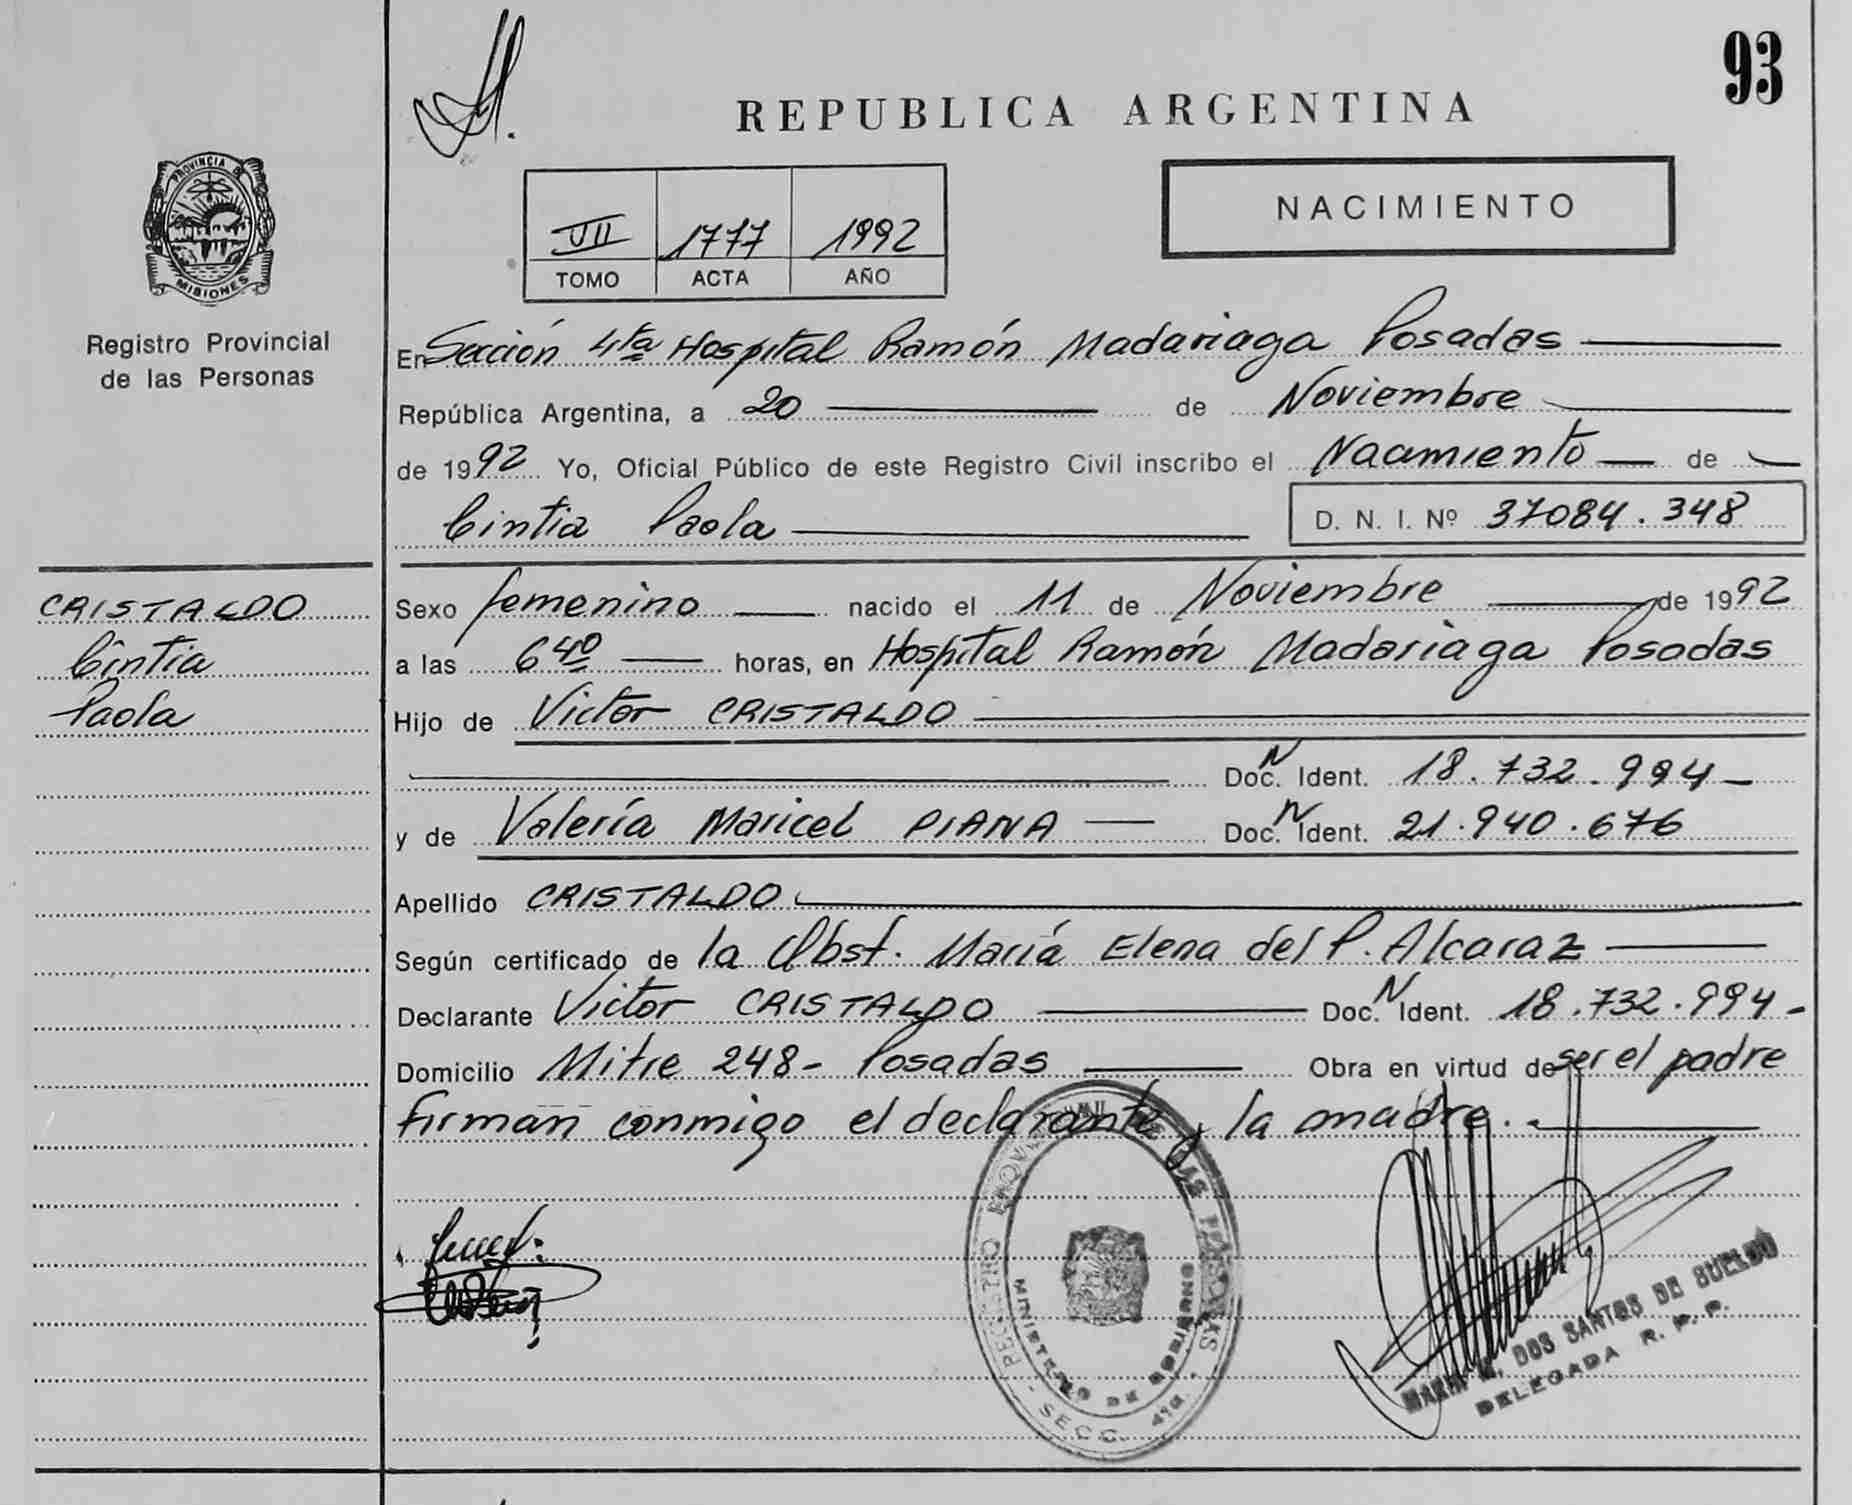 93
REPUBLICA ARGENTINA
PROVINCIA DE
MISIONES
Registro Provincial
de las Personas
VII 1777 1992
TOMO ACTA AÑO
NACIMIENTO
En Sección 4ta Hospital Ramón Madariaga Posadas
República Argentina, a 20 de Noviembre
de 1992 Yo, Oficial Público de este Registro Civil inscribo el Nacimiento de
Cintia Paola D. N. I. Nº 37084.348
CRISTALDO
Cintia
Paola
Sexo femenino nacido el 11 de Noviembre de 1992
a las 6 40 horas, en Hospital Ramón Madariaga Posadas
Hijo de Victor CRISTALDO
Doc. N Ident. 18.732.994
y de Valería Maricel PIANA Doc. N Ident. 21.940.676
Apellido CRISTALDO
Según certificado de la Obst. María Elena del P. Alcaraz
Declarante Victor CRISTALDO Doc. N Ident. 18.732.994-
Domicilio Mitre 248- Posadas Obra en virtud de ser el padre
firman conmigo el declarante y la madre.-
REGISTRO PROVINCIAL DE LAS PERSONAS
MINISTERIO DE GOBIERNO
SECC. 4ta.
MARIA DOS SANTOS DE SUELDO
DELEGADA R. P. P.